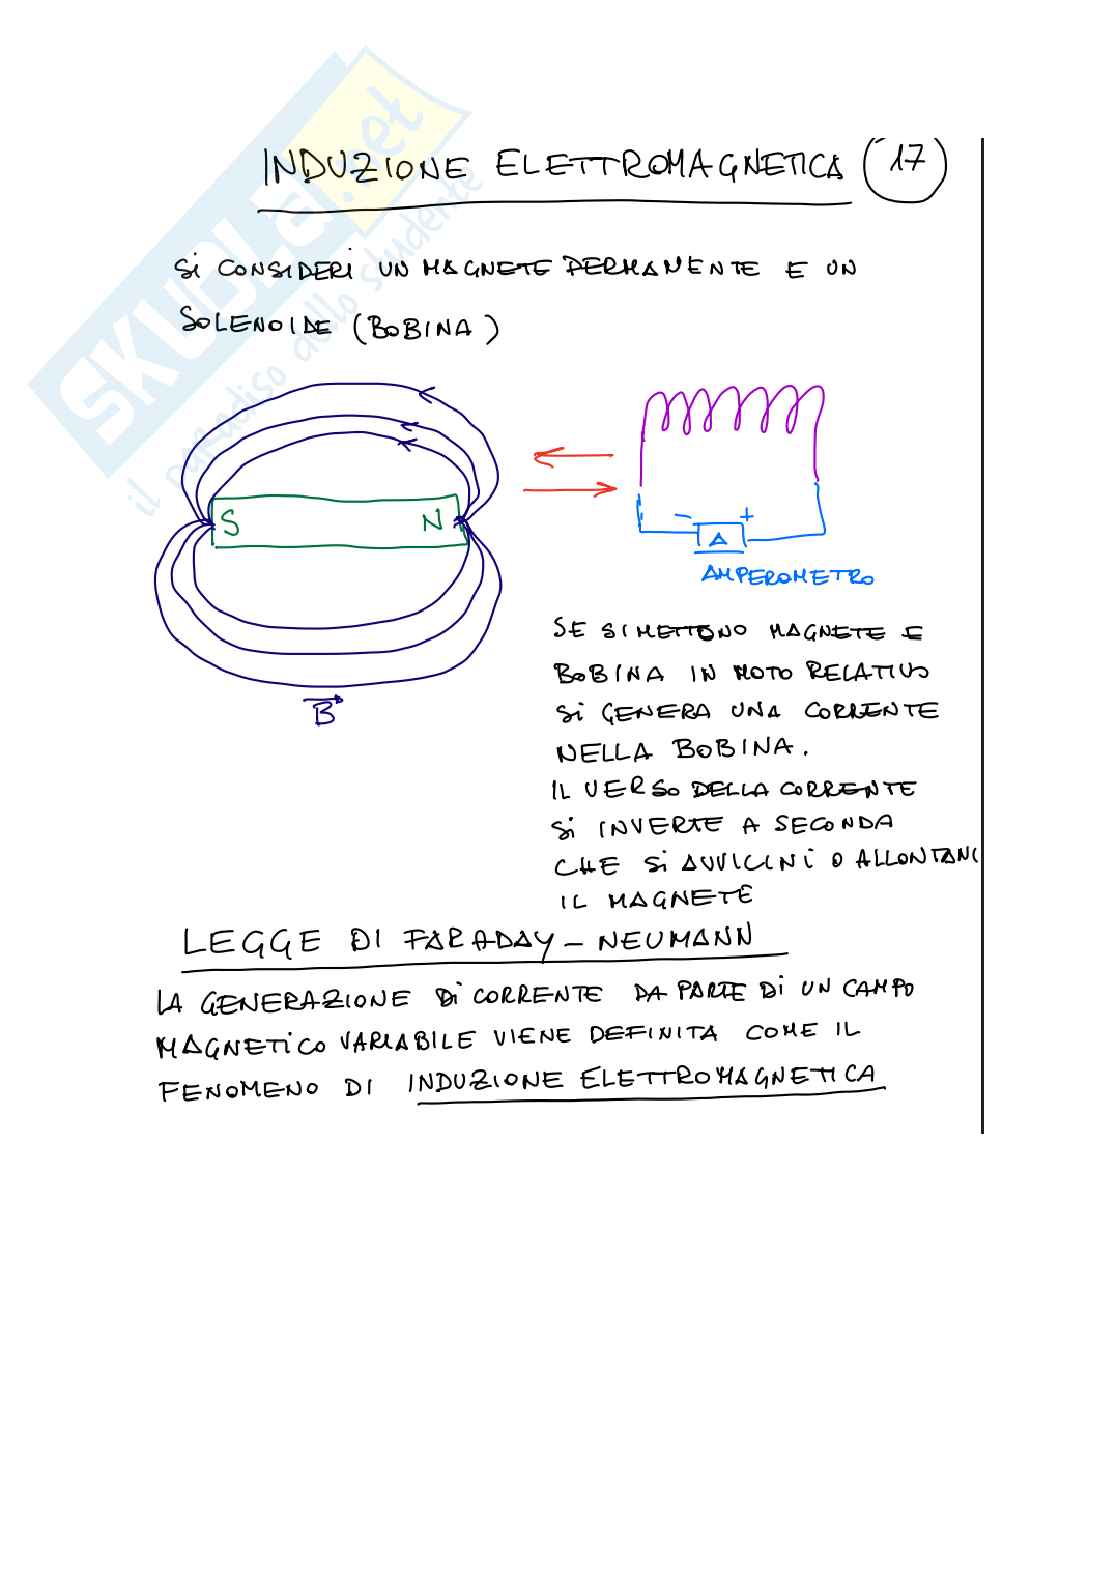 SKUOLA.net
il paradiso dello studente
INDUZIONE ELETTROMAGNETICA 17
Si CONSIDERI UN MAGNETE PERMANENTE E UN
SOLENOIDE (BOBINA)
S N
- +
A
AMPEROMETRO
B
SE SI METTONO MAGNETE E
BOBINA IN MOTO RELATIVO
Si GENERA UNA CORRENTE
NELLA BOBINA.
IL VERSO DELLA CORRENTE
Si INVERTE A SECONDA
CHE Si AVVICINI O ALLONTANI
IL MAGNETE
LEGGE DI FARADAY - NEUMANN
LA GENERAZIONE Di CORRENTE DA PARTE Di UN CAMPO
MAGNETICO VARIABILE VIENE DEFINITA COME IL
FENOMENO DI INDUZIONE ELETTROMAGNETICA